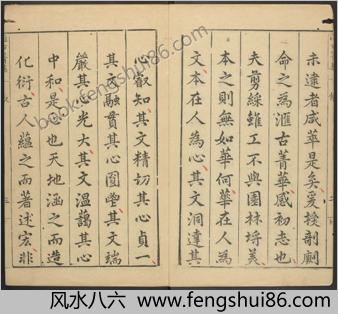 未達者咸華是矣爰授剞劂
命之為滙古菁華感初志也
夫剪綵雖工不與園林埒美
本之則無如華何華在人為
文本在人為心其文洞達其
心叡知其文精切其心貞一
其文融貫其心圓瑩其文端
嚴其心光大其文溫藹其心
中和是心也天地涵之而造
化衍古人蘊之而著述宏非
book.fengshui86.com
风水八六 - www.fengshui86.com